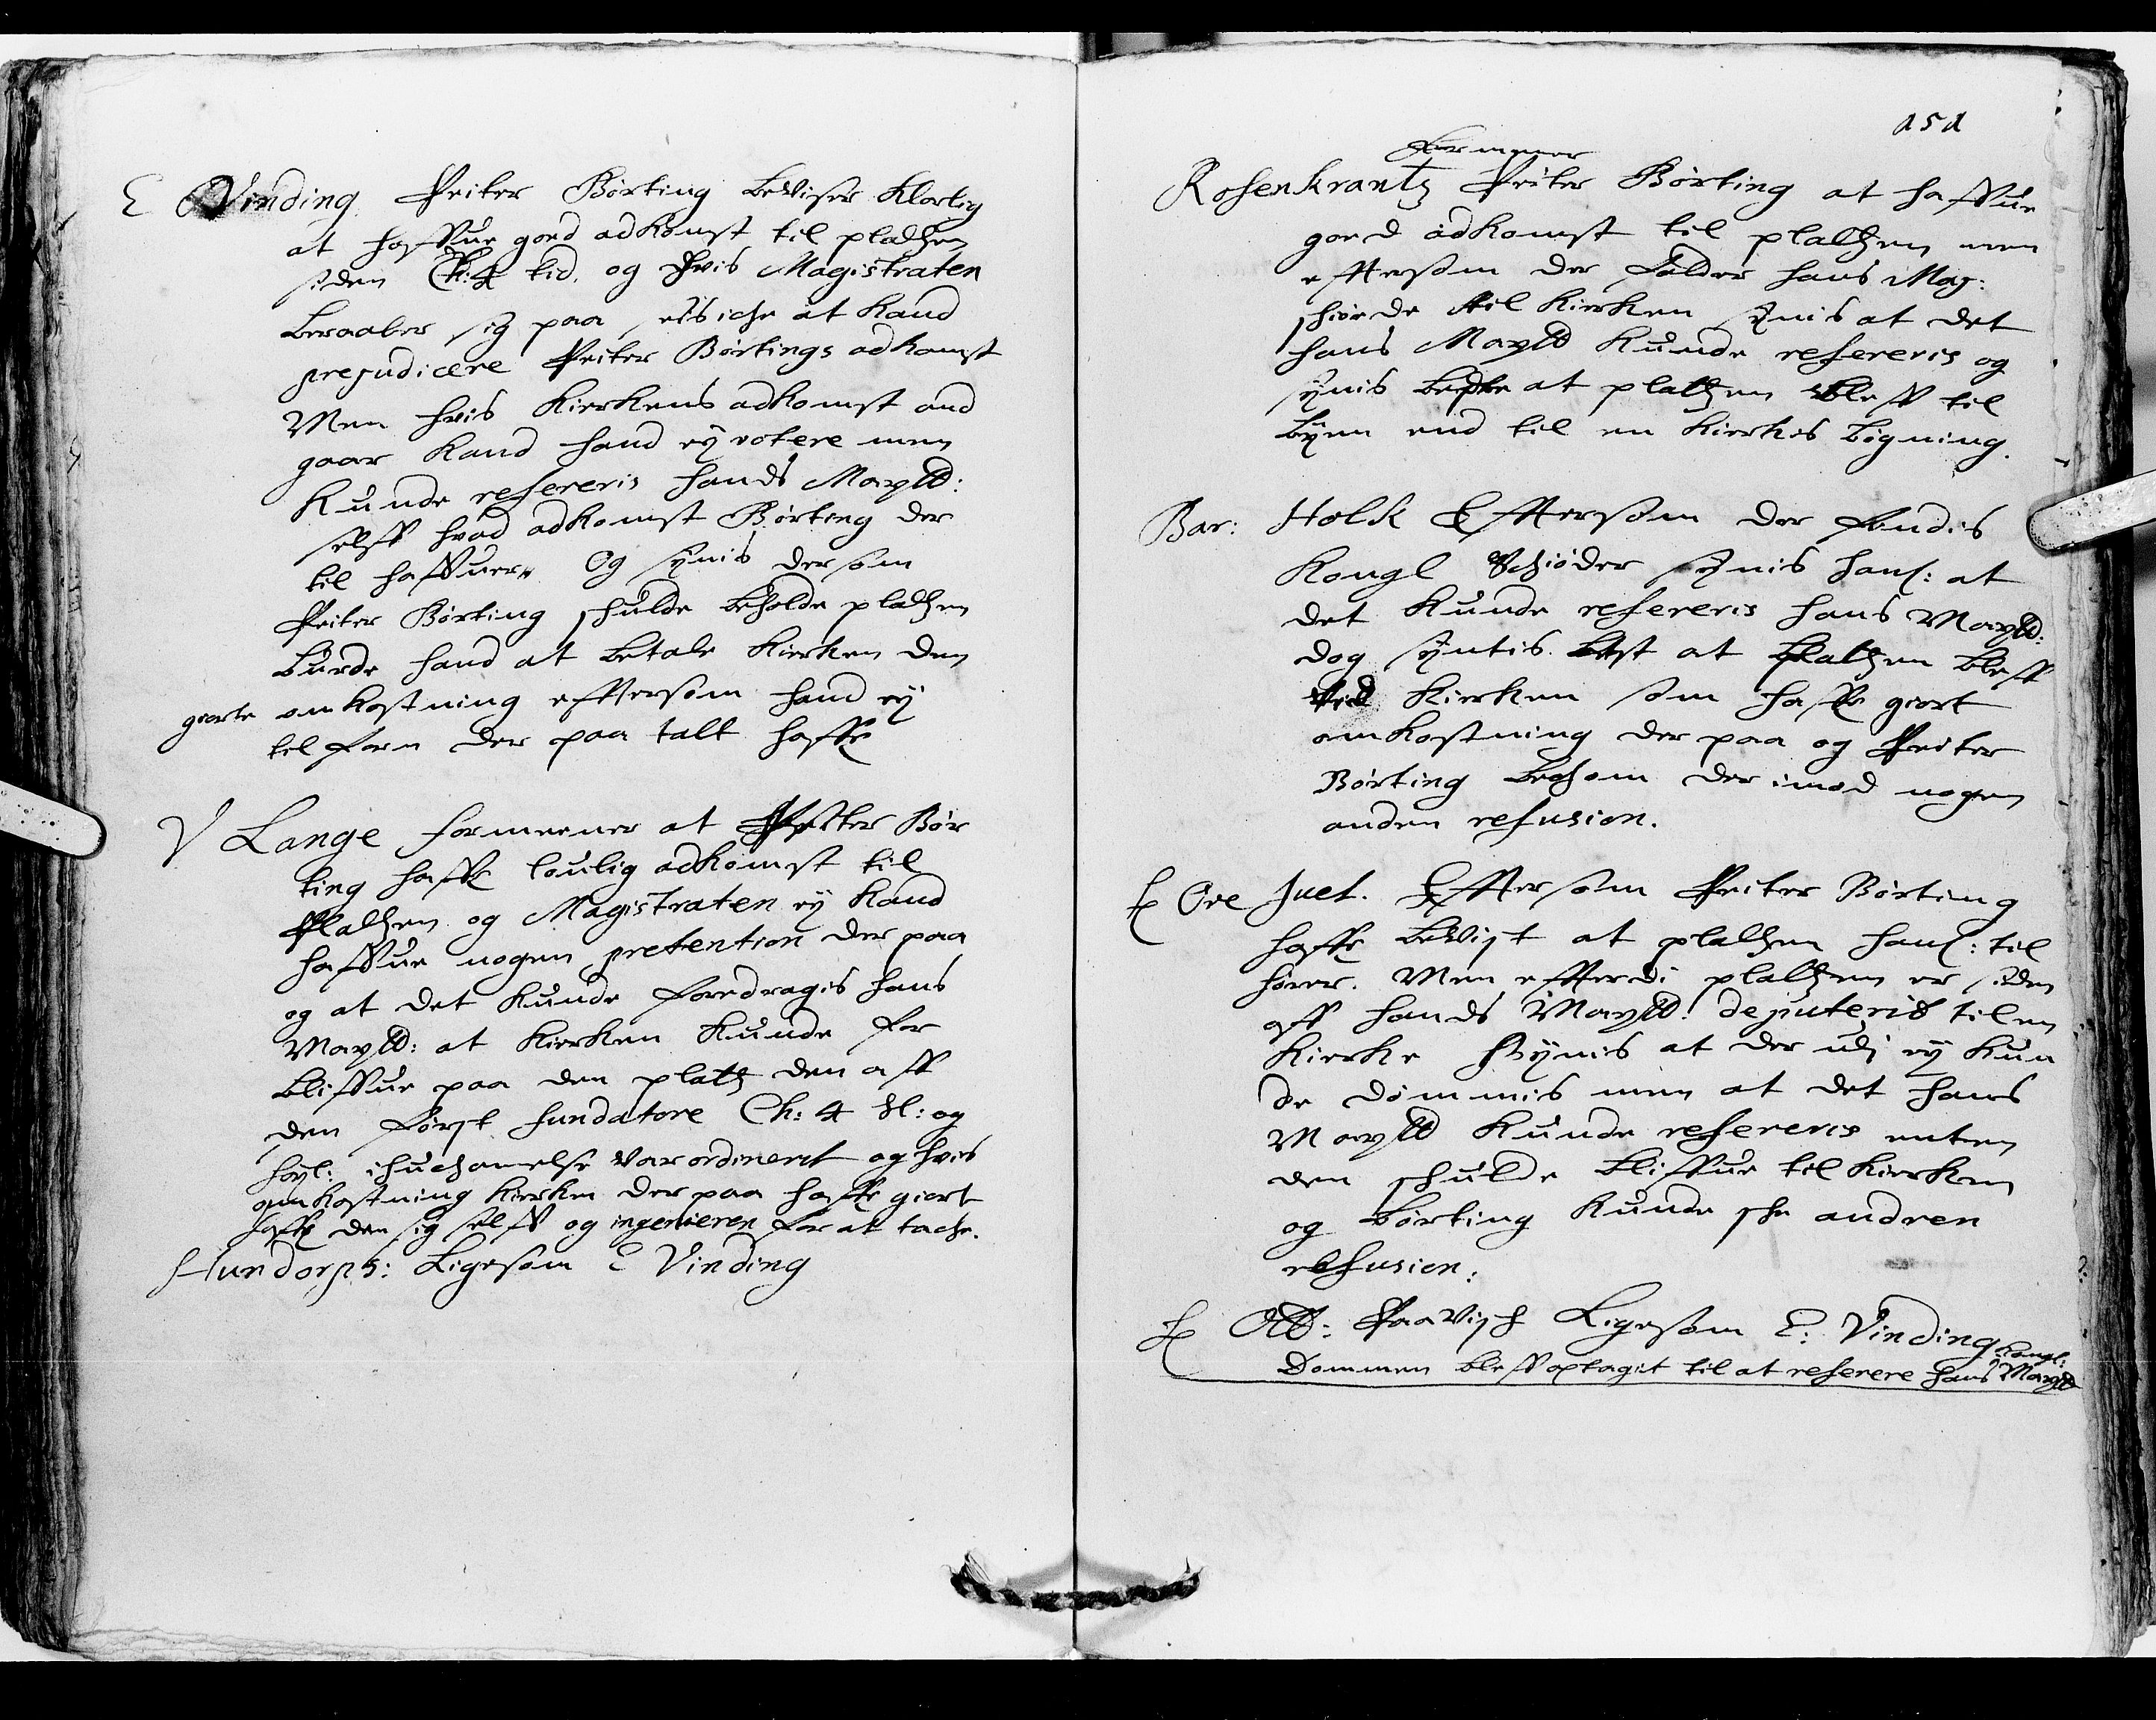 E Vinding Peiter Börting beviser klarlig
at haffue goed adkomst til pladzen
siden Ch: 4 tid, og hvis Magistraten
beraaber sig paa, iche at kand
prejudicere Peiter Börtings adkomst
Men hvis Kierkens adkomst and
gaar kand hand ey votere men
kunde refereris hands Maytt:
selff hvad adkomst Börting der
til haffuer. Og synis dersom
Peiter Börting schulde beholde pladzen
burde hand at betale Kierken den
giorte omkostning effterson hand ey
tilforn der paa talt haffr
V Lange formeener at Peiter Bör
ting haffr loulig adkomst til
Pladzen og Magistraten ey kand
haffue nogen pretention der paa
og at det kunde foredragis hans
Maytt: at Kierken kunde for
bliffue paa den platz den aff
den först fundatore Ch: 4 H: og
höyl: ihuchomelse var ordinerit og hvis
omkostning Kierken der paa haffr giort
haffr den sig selff og ingenieren for at tache.
Hundorph: Ligesom E Vinding
151
formener
Rosenkrantz Peiter Börting at haffue
goed adkomst til pladzen men
effterson der falder hans May:
schiöde til Kierken synis at det
hans Maytt kunde refereris og
synis bedre at pladzen bleff til
byen end til en Kierkis bögning.
Bar: Holk Effterson der findis
Kongl Schiöder synis hanſ: at
det kunde refereris hans Maytt:
dog syntis best at Pladzen bleff
ved Kierken som haffr giort
omkostning der paa og Peiter
Börting bechom der imod nogen
anden refusion.
Ove Juel. Effterson Peiter Börting
haffr bevist at pladzen hanſ: til
hörer. Men efferdi pladzen er siden
aff hands Maytt: deputerit til en
Kierke Synis at der udj ey kun
de dömmis men at det hans
Maytt kunde refereris enten
den schulde bliffue til Kierken
og Börting kunde sche andren
refusion:
Ott: Paavisch Ligesom E: Vinding
Dommen bleff optagit til at referere hans Kongl: Maytt